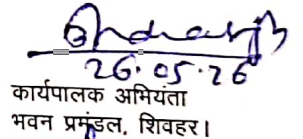 26.05.26
कार्यपालक अभियंता
भवन प्रमंडल, शिवहर।